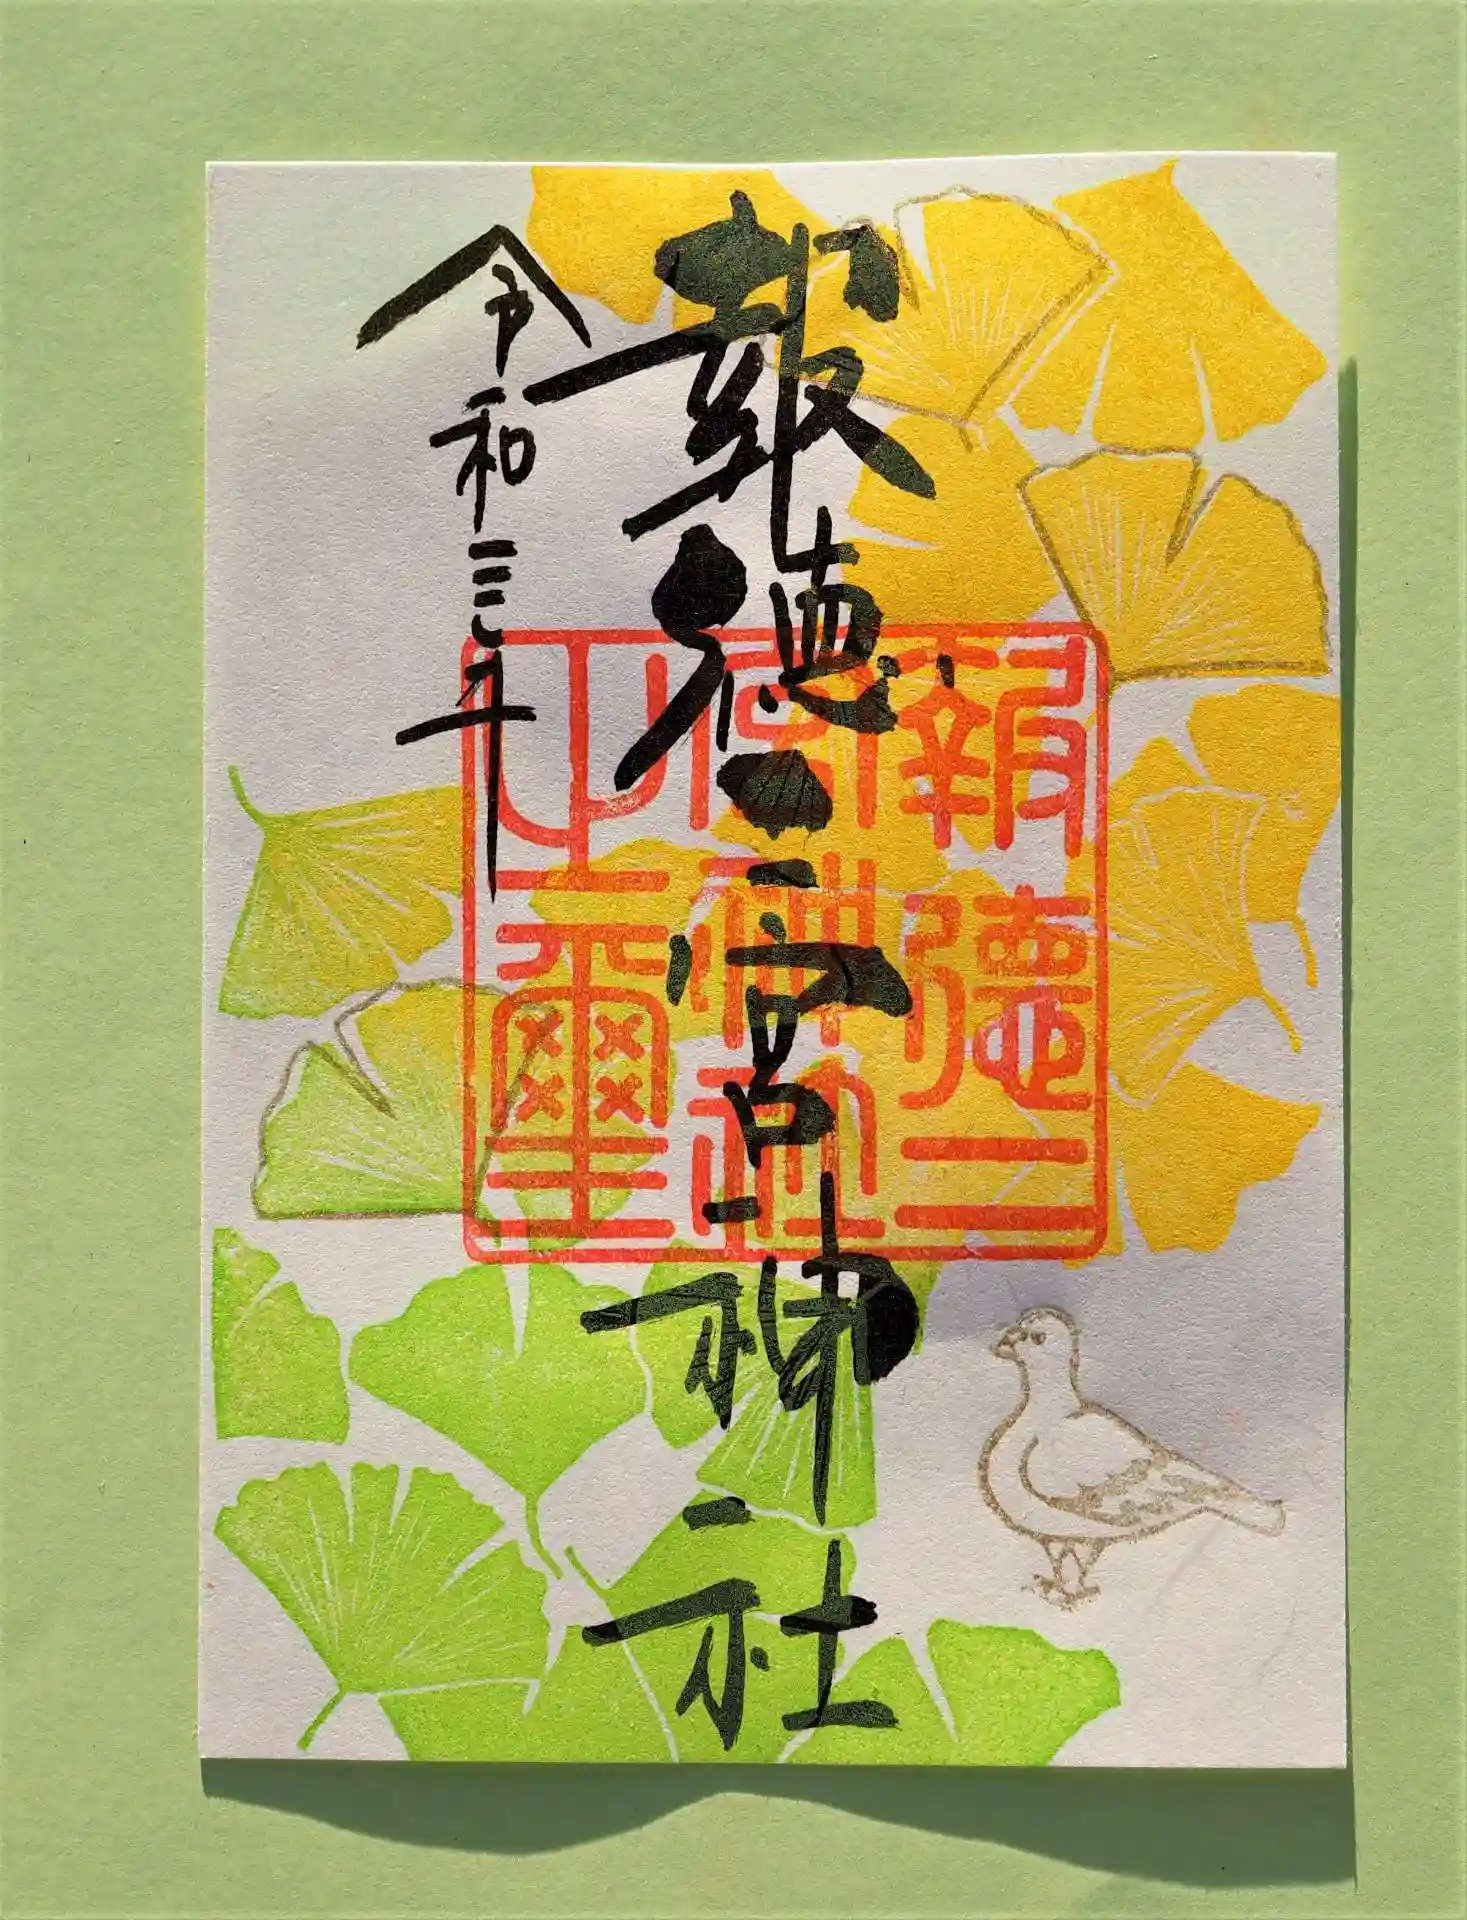 報徳二宮神社
令和三年
報德二
宮神社
之璽